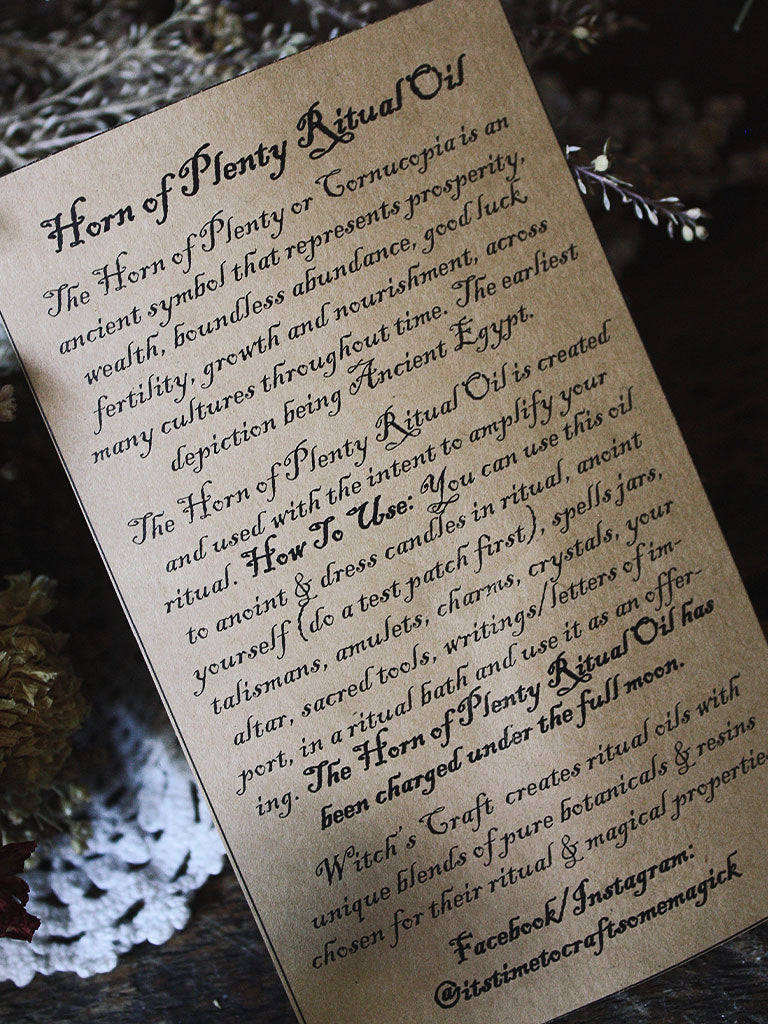 Horn of Plenty Ritual Oil
The Horn of Plenty or Cornucopia is an
ancient symbol that represents prosperity,
wealth, boundless abundance, good luck
fertility, growth and nourishment, across
many cultures throughout time. The earliest
depiction being Ancient Egypt.
The Horn of Plenty Ritual Oil is created
and used with the intent to amplify your
ritual. How To Use: You can use this oil
to anoint & dress candles in ritual, anoint
yourself (do a test patch first), spells jars,
talismans, amulets, charms, crystals, your
altar, sacred tools, writings/letters of im-
port, in a ritual bath and use it as an offer-
ing. The Horn of Plenty Ritual Oil has
been charged under the full moon.
Witch's Craft creates ritual oils with
unique blends of pure botanicals & resins
chosen for their ritual & magical propertie
Facebook/Instagram:
@itstimetocraftsomemagick